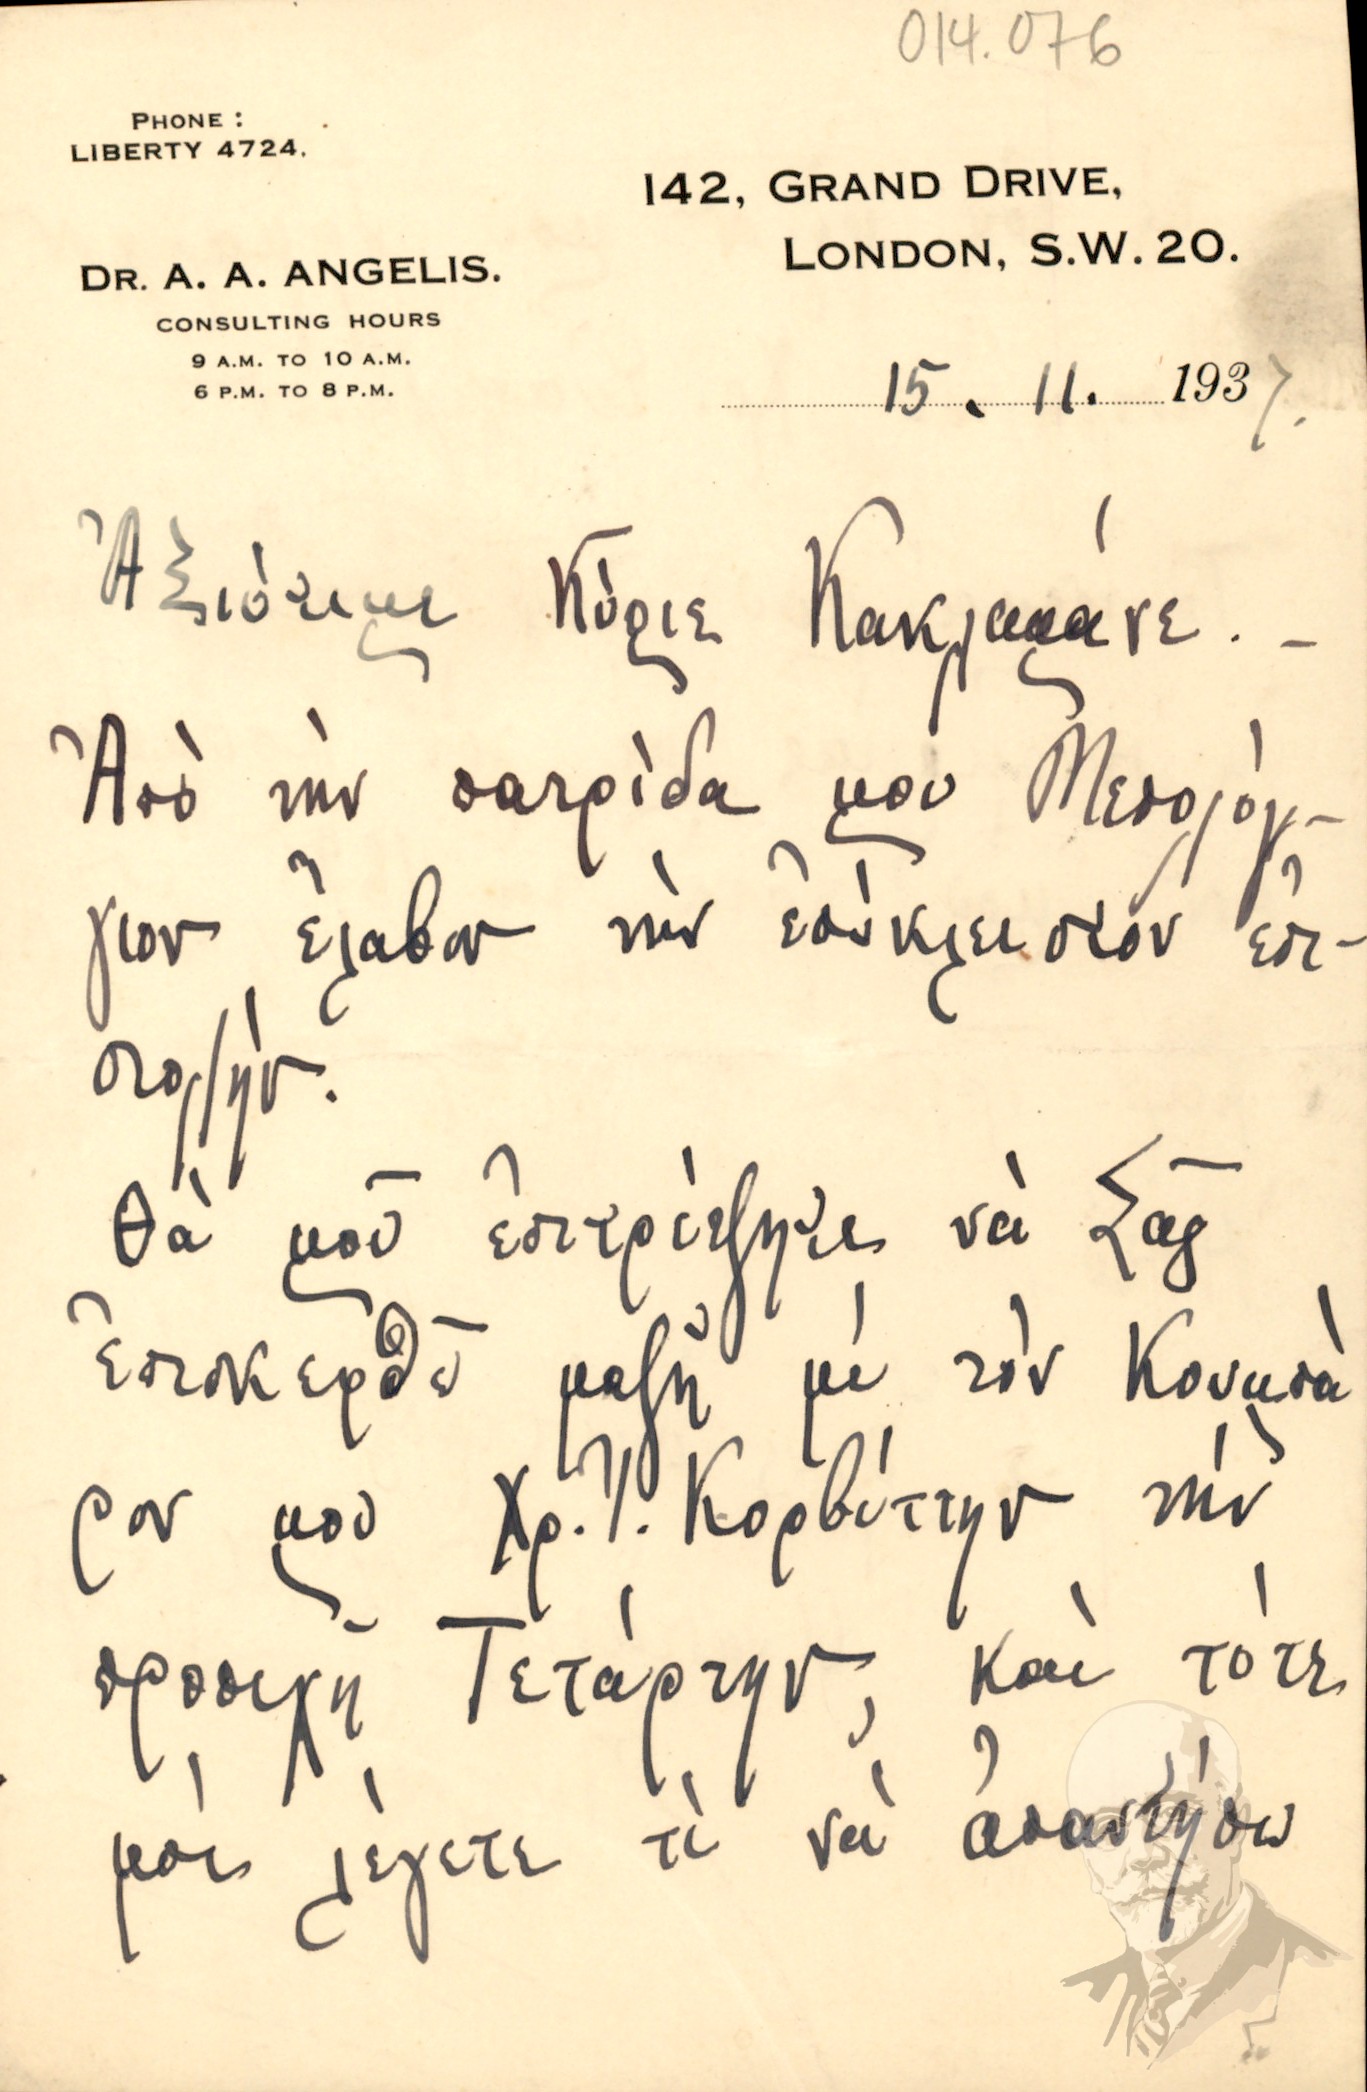 014.076
PHONE :
LIBERTY 4724.
142, GRAND DRIVE,
LONDON, S.W. 20.
DR. A. A. ANGELIS.
CONSULTING HOURS
9 A.M. TO 10 A.M.
6 P.M. TO 8 P.M.
15. 11. 1937.
Ἀξιότιμε Κύριε Κακλαμάνε. -
Ἀπὸ τὴν πατρίδα μου Μεσολόγ-
γιον ἔλαβον τὴν ἐσώκλειστον ἐπι-
στολὴν.
Θὰ μοῦ ἐπιτρέψητε νὰ Σᾶς
ἐπισκεφθῶ μαζῆ μὲ τὸν Κουμπά
ρον μου Χρ. Ι. Κορβέττην τὴν
προσεχῆ Τετάρτην, καὶ τότε
μοι λέγετε τὶ νὰ ἀπαντήσω